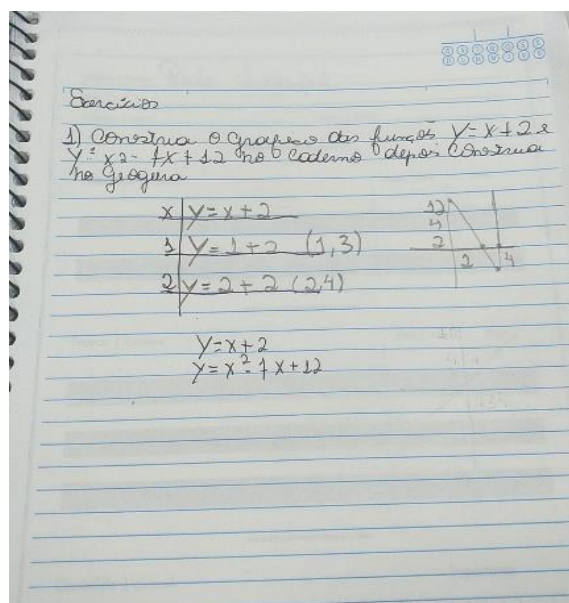 Exercícios
1) Construa o grafico das funções y = x + 2 e
y = x2 - 7x + 12 no caderno depois construa
no geogera
x | y = x + 2
1 | y = 1 + 2 (1, 3)
2 | y = 2 + 2 (2,4)
12
4
2
2 4
y = x + 2
y = x² - 7x + 12